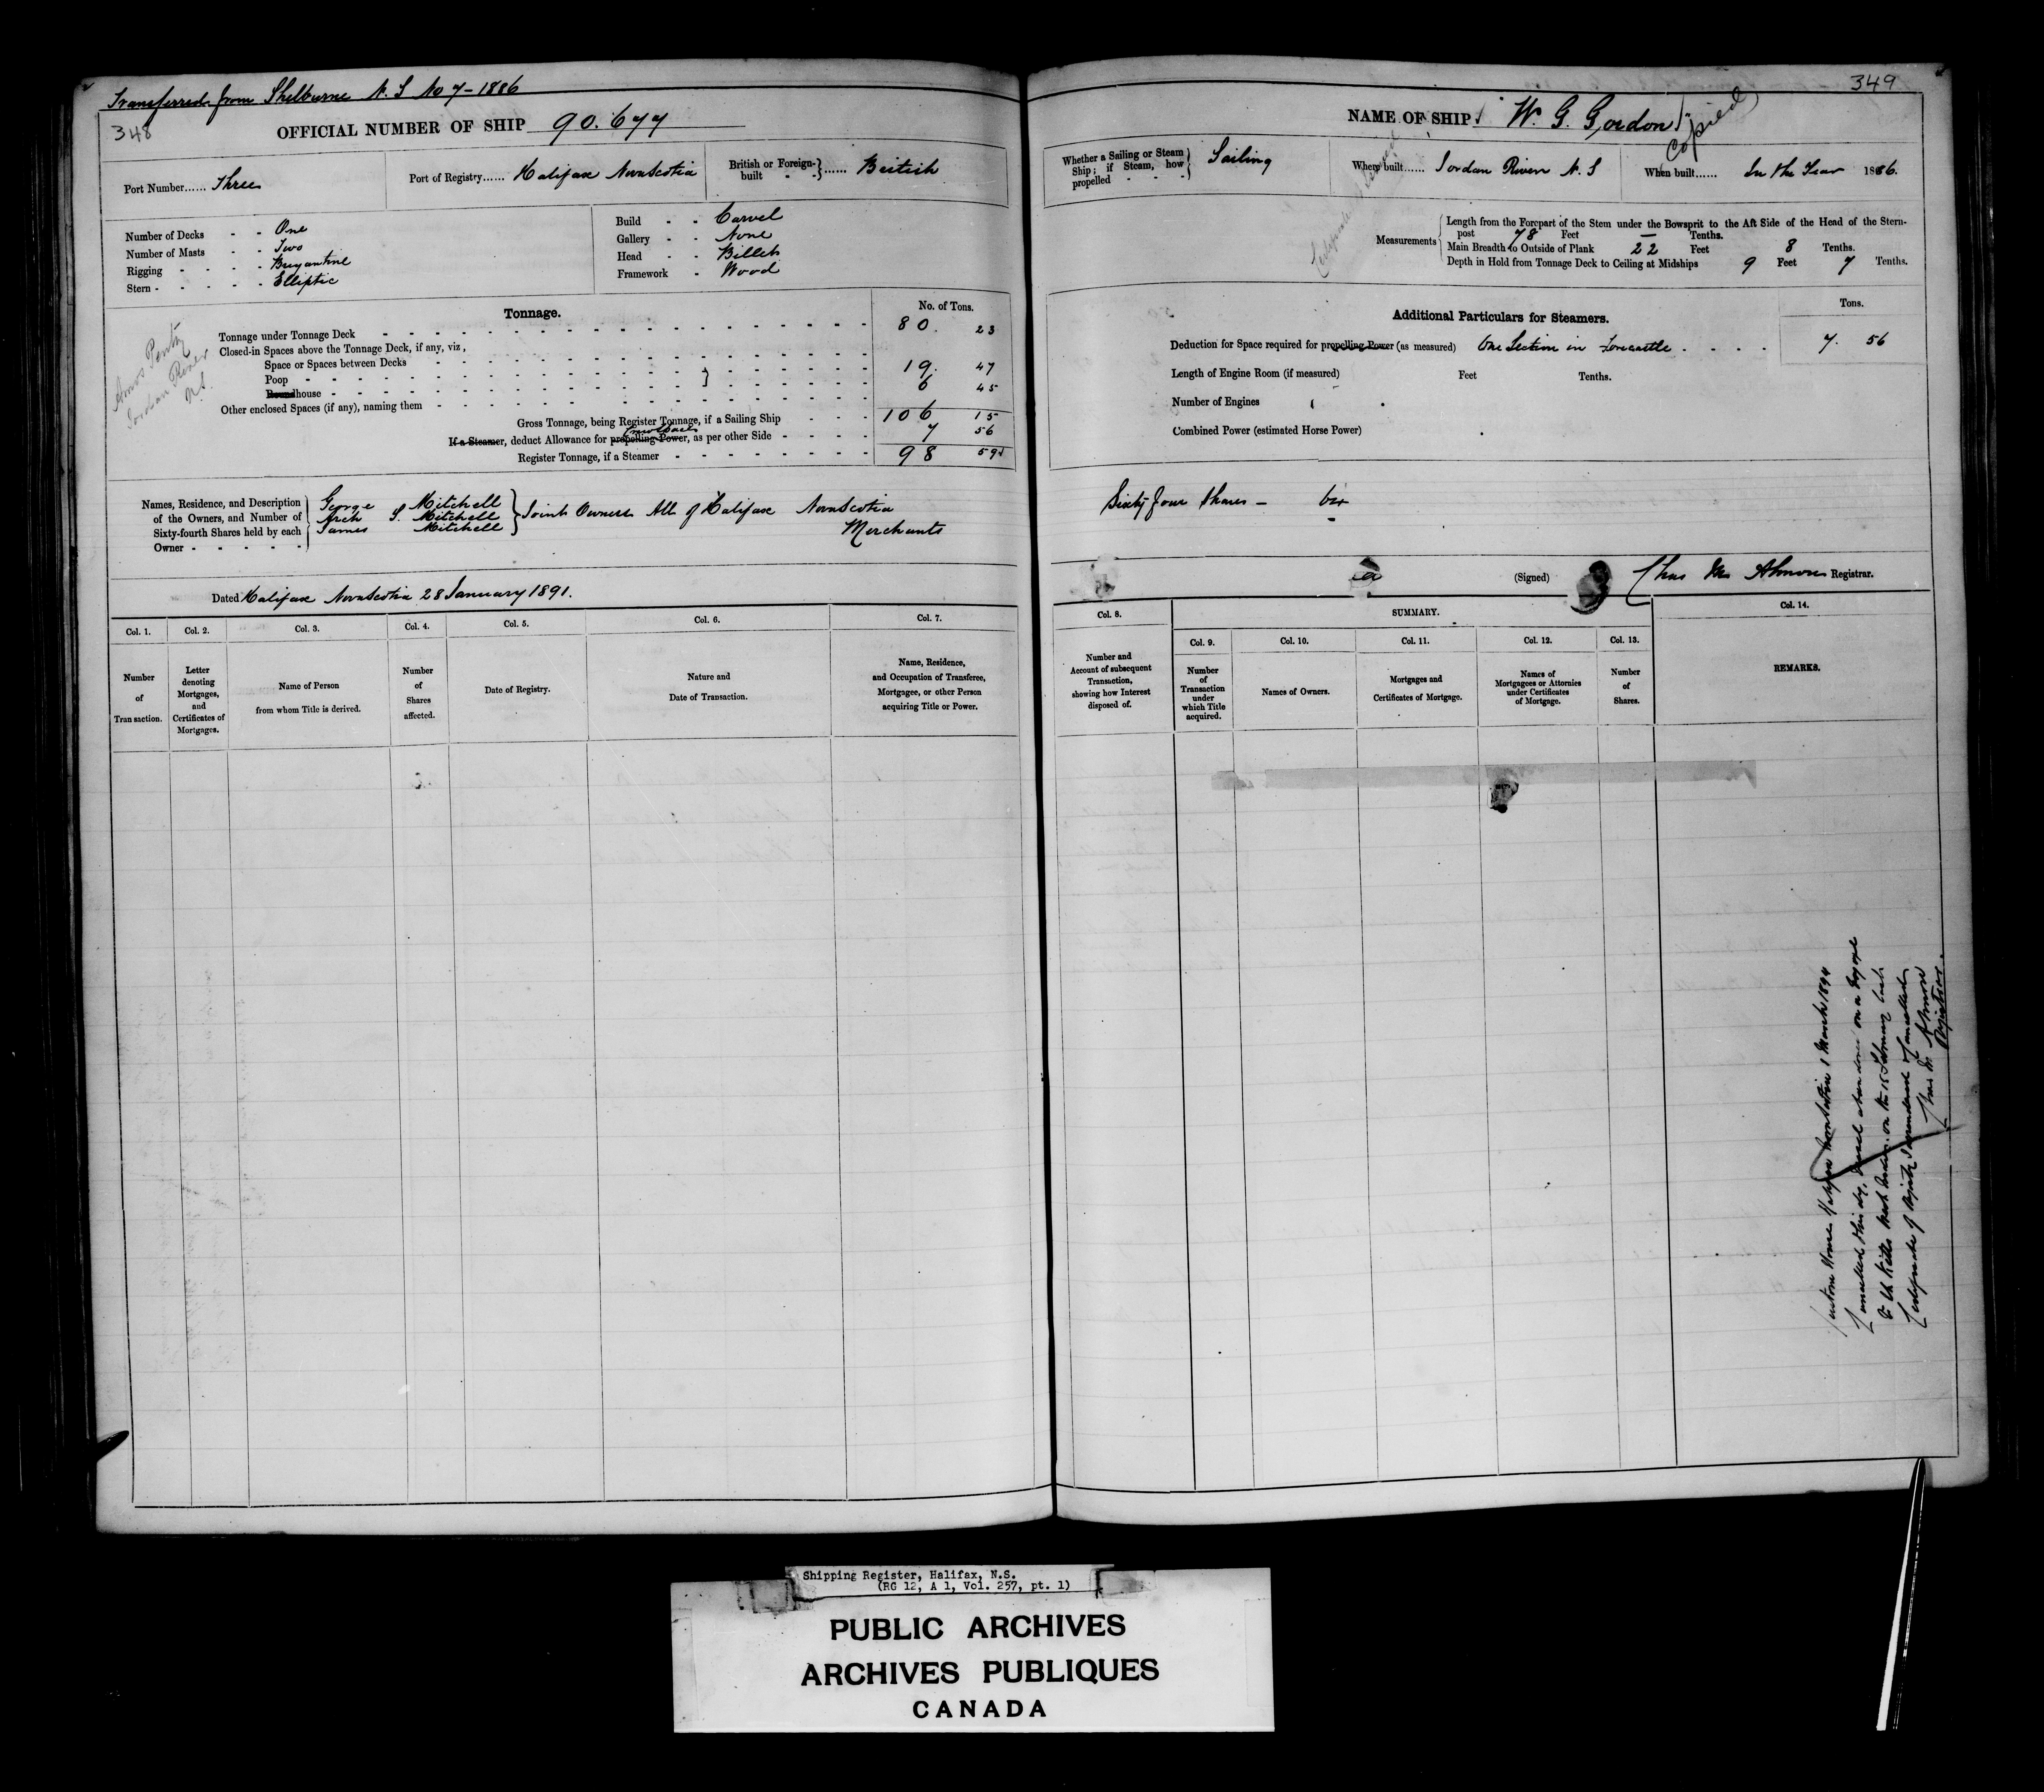 Transferred from Shelburne N. S No 7-1886
348
OFFICIAL NUMBER OF SHIP 90.677
Port Number...... Three
Port of Registry...... Halifax NovaScotia
British or Foreign-built - - } ...... British
Number of Decks - - One
Number of Masts - - Two
Rigging - - - - Brigantine
Stern - - - - - Elliptic
Build - - Carvel
Gallery - - None
Head - - Billet
Framework - Wood
Amos Pentz
Jordan River
N.S.
Tonnage.
No. of Tons.
Tonnage under Tonnage Deck 80. 23
Closed-in Spaces above the Tonnage Deck, if any, viz,
Space or Spaces between Decks
Poop 19. 47
Roundhouse 6 45
Other enclosed Spaces (if any), naming them
Gross Tonnage, being Register Tonnage, if a Sailing Ship 106 15
If a Steamer, deduct Allowance for propelling Power, as per other Side 7 56
Register Tonnage, if a Steamer 98 59
Names, Residence, and Description
of the Owners, and Number of
Sixty-fourth Shares held by each
Owner - - - - -
George Mitchell
Arch S. Mitchell
James Mitchell
} Joint Owners All of Halifax NovaScotia
Merchants
Dated Halifax NovaScotia 28 January 1891.
Col. 1. Col. 2. Col. 3. Col. 4. Col. 5. Col. 6. Col. 7.
Number of Transaction.
Letter denoting Mortgages, and Certificates of Mortgages.
Name of Person from whom Title is derived.
Number of Shares affected.
Date of Registry.
Nature and Date of Transaction.
Name, Residence, and Occupation of Transferee, Mortgagee, or other Person acquiring Title or Power.
349
NAME OF SHIP W. G. Gordon
Copied
Whether a Sailing or Steam Ship; if Steam, how propelled - - - } Sailing
Where built...... Jordan River N. S
When built...... In the Year 1886.
Certificate
Measurements
Length from the Forepart of the Stem under the Bowsprit to the Aft Side of the Head of the Stern-
post 78 Feet — Tenths.
Main Breadth to Outside of Plank 22 Feet 8 Tenths.
Depth in Hold from Tonnage Deck to Ceiling at Midships 9 Feet 7 Tenths.
Additional Particulars for Steamers.
Tons.
Deduction for Space required for propelling Power (as measured) One Section in Forecastle 7. 56
Length of Engine Room (if measured) Feet Tenths.
Number of Engines
Combined Power (estimated Horse Power)
Sixty four Shares —
(Signed) Chas Almon Registrar.
Col. 8. SUMMARY. Col. 14.
Col. 9. Col. 10. Col. 11. Col. 12. Col. 13.
Number and Account of subsequent Transaction, showing how Interest disposed of.
Number of Transaction under which Title acquired.
Names of Owners.
Mortgages and Certificates of Mortgage.
Names of Mortgagees or Attornies under Certificates of Mortgage.
Number of Shares.
REMARKS.
Custom House Halifax NovaScotia 1 March 1894
Cancelled this day, Vessel abandoned on a voyage
to St Kitts West Indies on the 15 February last
Certificate of Registry surrendered & cancelled
Chas Almon
Registrar
Shipping Register, Halifax, N.S.
(RG 12, A 1, Vol. 257, pt. 1)
PUBLIC ARCHIVES
ARCHIVES PUBLIQUES
CANADA